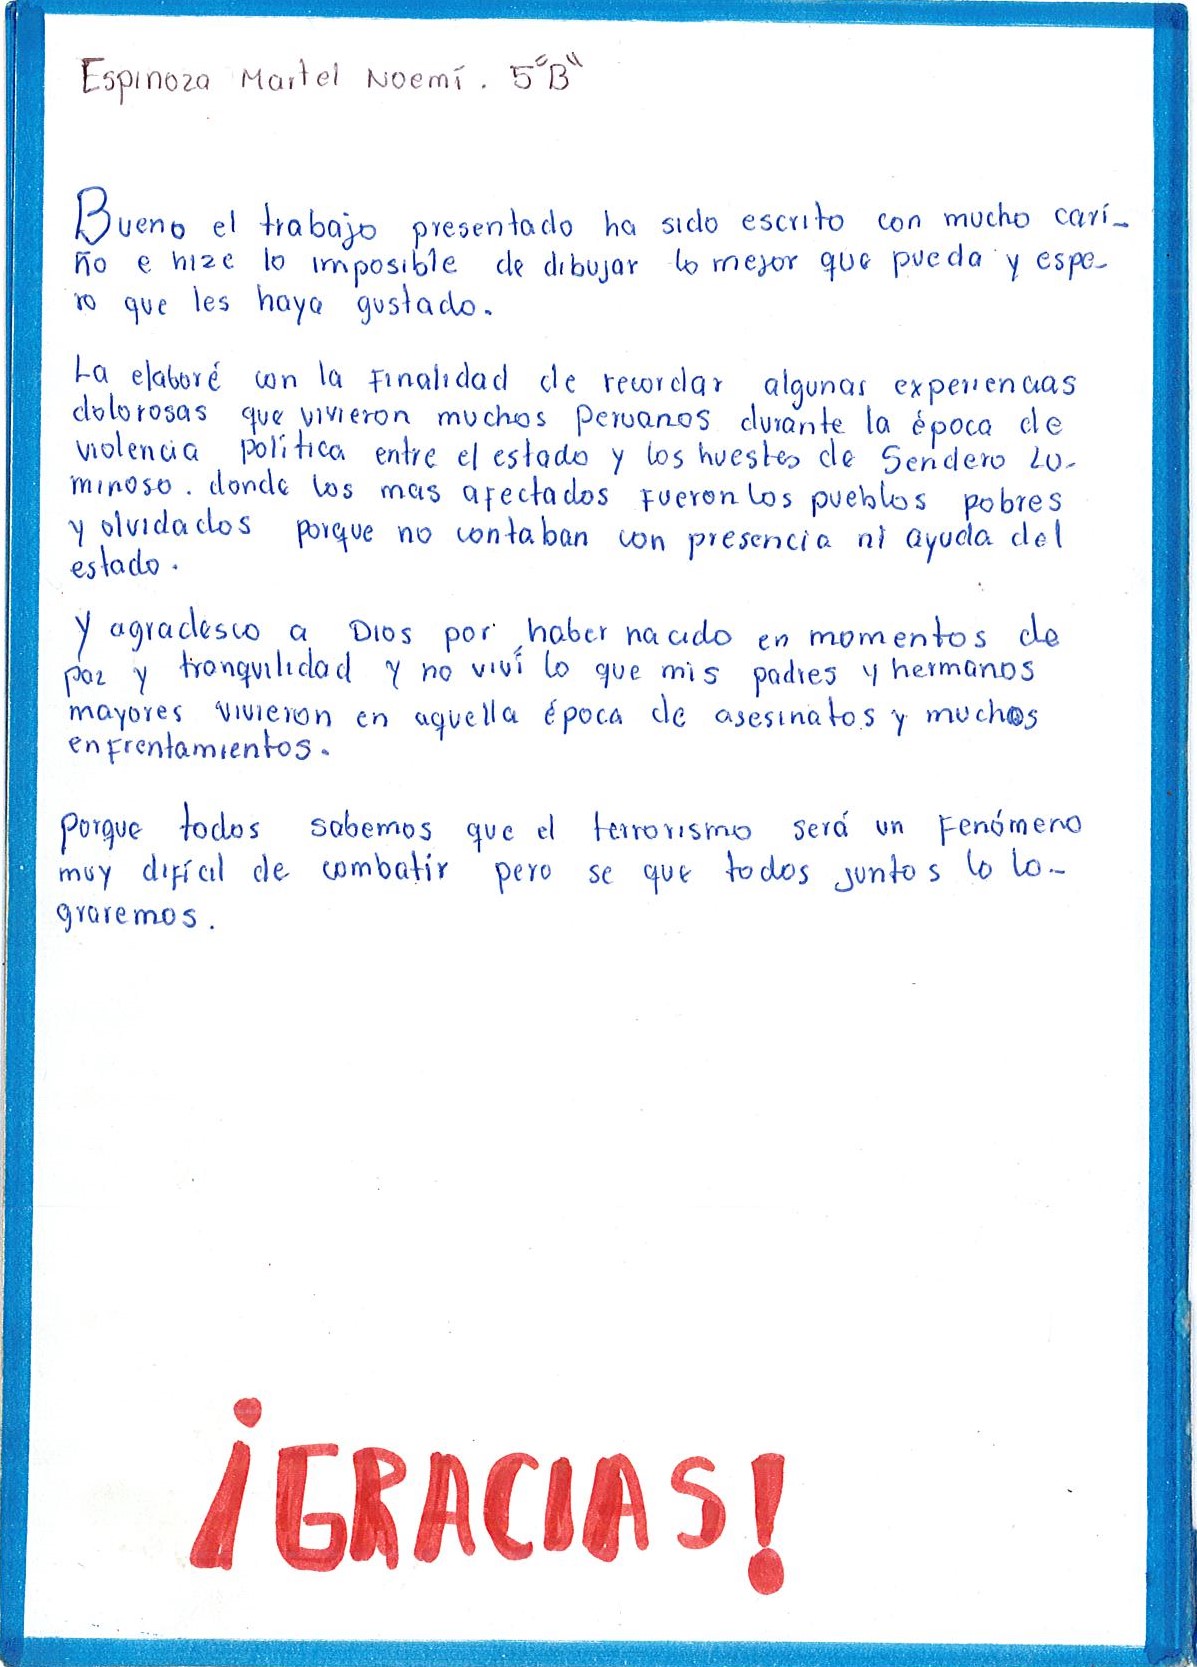 Espinoza Martel Noemí. 5"B"
Bueno el trabajo presentado ha sido escrito con mucho cari-
ño e hize lo imposible de dibujar lo mejor que pueda y espe-
ro que les haya gustado.
La elaboré con la finalidad de recordar algunas experiencias
dolorosas que vivieron muchos Peruanos durante la época de
violencia política entre el estado y los huestes de Sendero Lu-
minoso. donde los mas afectados fueron los pueblos pobres
y olvidados porque no contaban con presencia ni ayuda del
estado.
Y agradesco a Dios por haber nacido en momentos de
paz y tranquilidad y no viví lo que mis padres y hermanos
mayores vivieron en aquella época de asesinatos y muchos
enfrentamientos.
Porque todos sabemos que el terrorismo será un fenómeno
muy difícil de combatir pero se que todos juntos lo lo-
graremos.
¡GRACIAS!